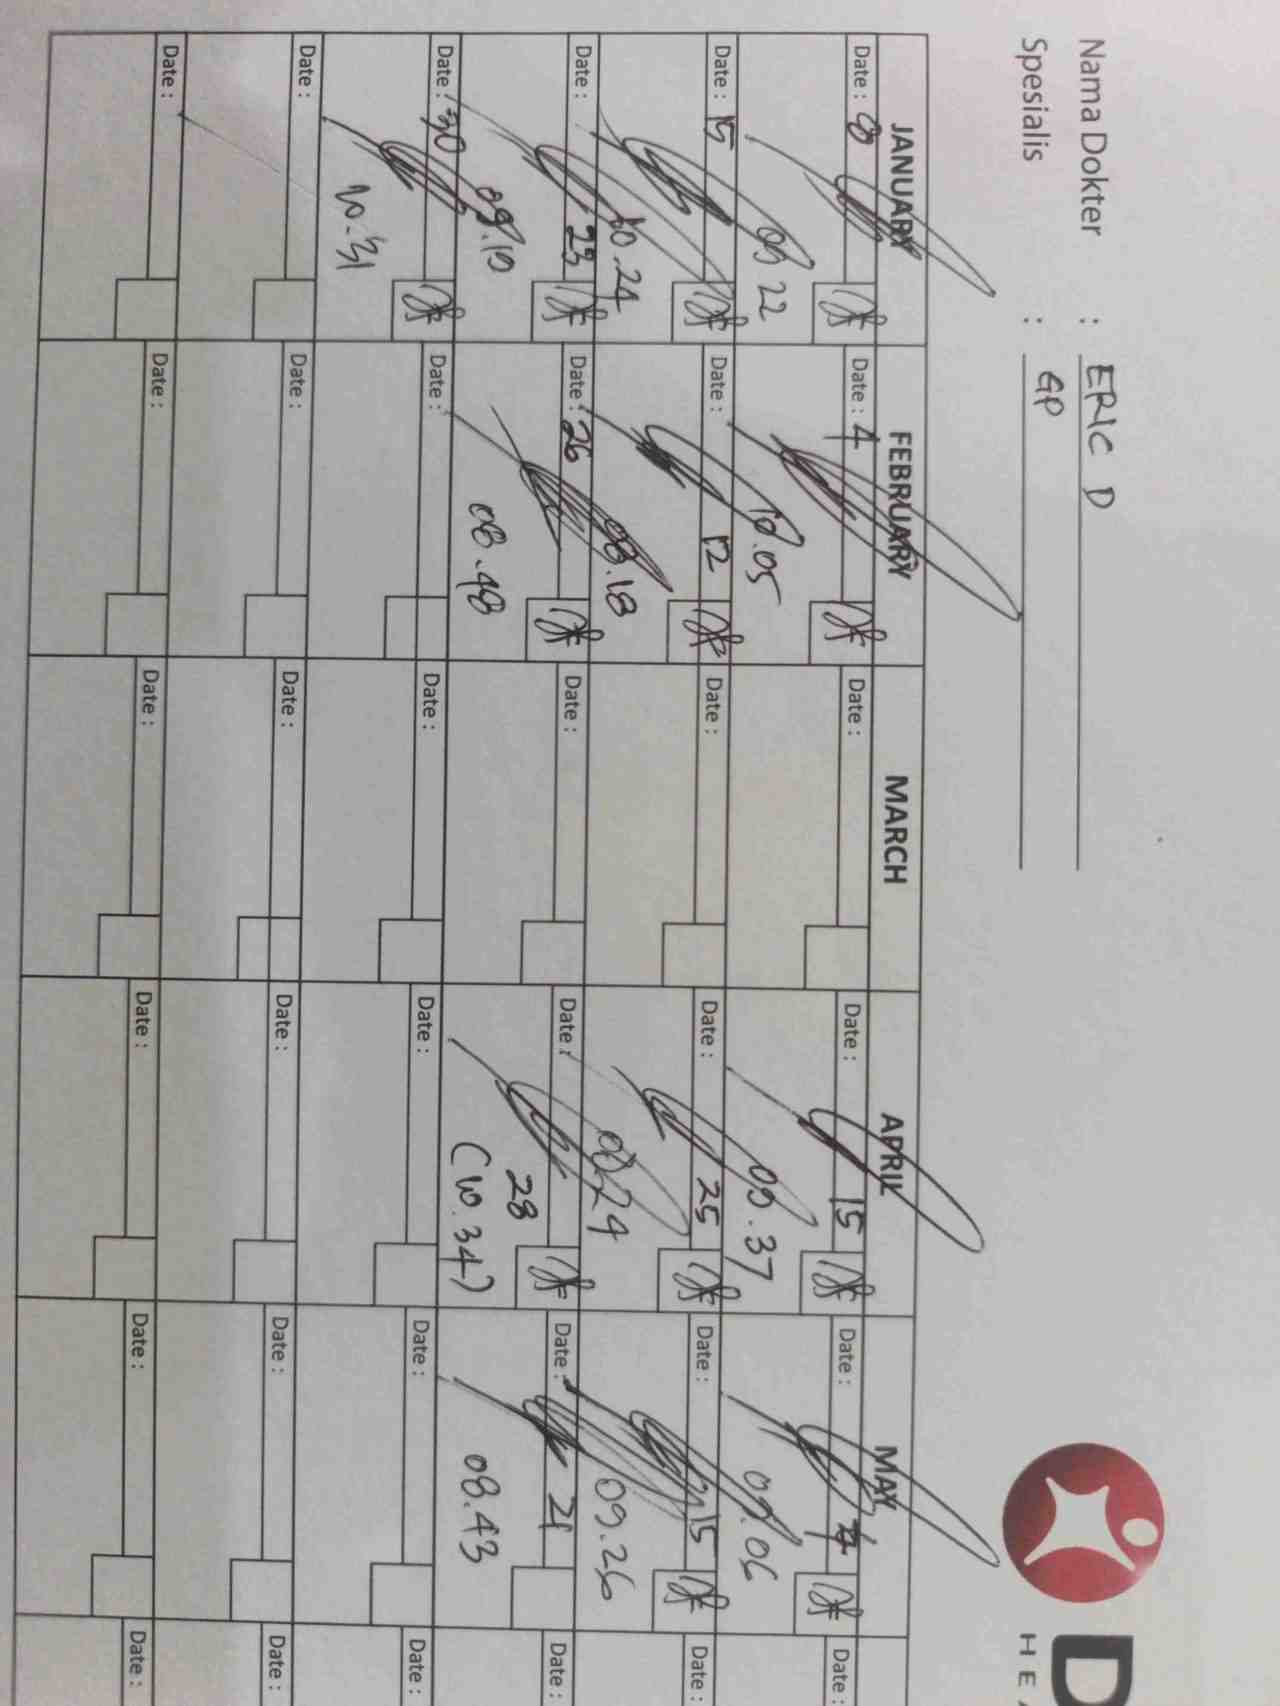 Nama Dokter : ERIC D
Spesialis : GP
D
HEA
JANUARY FEBRUARY MARCH APRIL MAY
Date: 8 Date: 4 Date: Date: 15 Date: 7 Date:
09 22 10.05 09.37 09.06
Date: 15 Date: 12 Date: Date: 25 Date: 15 Date:
10.24 08.18 08.24 09.26
Date: 23 Date: 26 Date: Date: 28 Date: 21 Date:
09.10 08.48 (10.34) 08.43
Date: 30 Date: Date: Date: Date: Date:
10.31
Date: Date: Date: Date: Date: Date:
Date: Date: Date: Date: Date: Date: